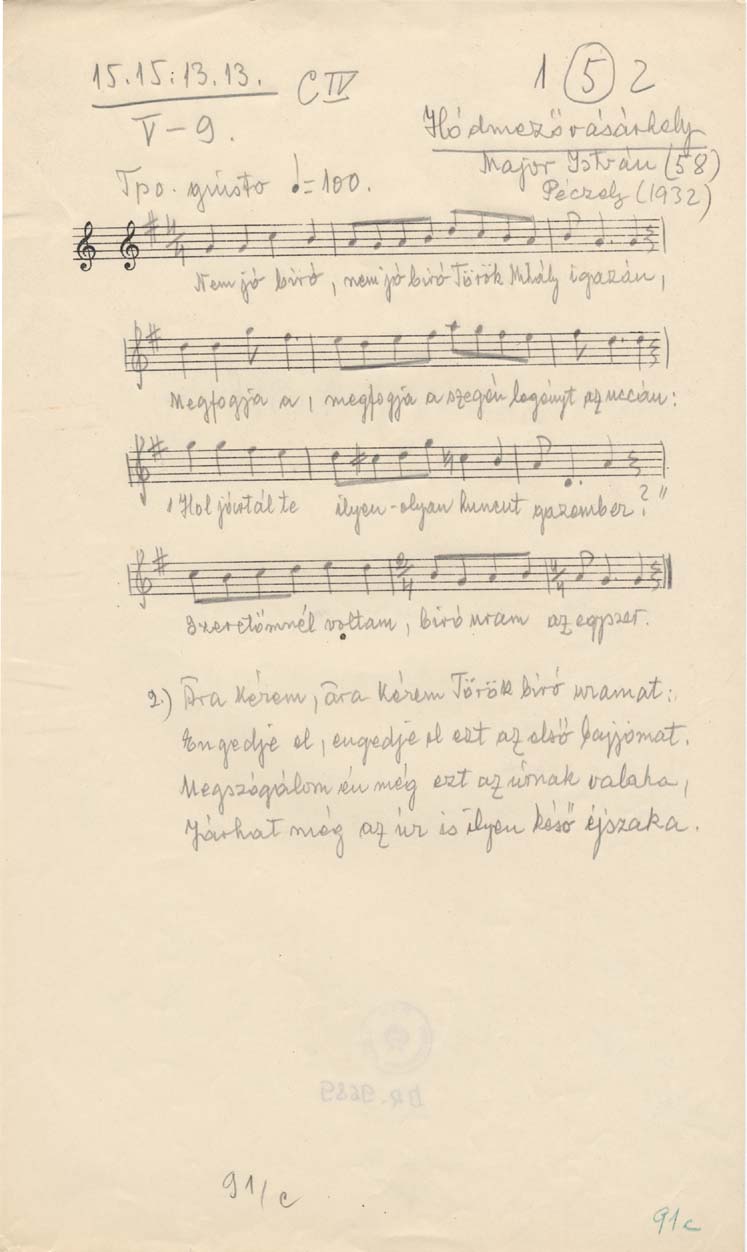 15.15:13.13. C IV 1 5 2
V-9. Hódmezővásárhely
Major István (58)
Tpo. giusto ♩=100. Péczely (1932)
4/4
Nem jó biró, nem jó biró Török Mihály igazán,
Megfogja a, megfogja a szegén legényt az uccán:
"Hol jártál te ilyen-olyan huncut gazember?"
6/4 4/4
Szeretőmnél voltam, biró uram az egyszer.
2.) Ára kérem, ára kérem Török biró uramat:
Engedje el, engedje el ezt az első bajjomat.
Megszógálom én még ezt az úrnak valaha,
Járhat még az úr is ilyen késő éjszaka.
BR. 9689
91/c
91c